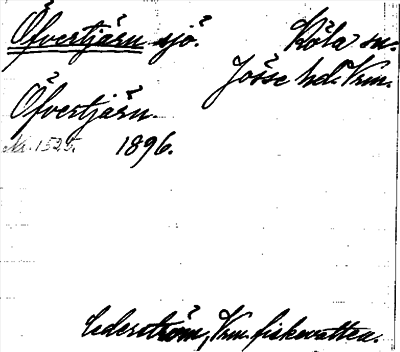 Öfvertjärn sjö. Köla sn.
Jösse hd. Vrm.
Öfvertjärn.
Nr. 1525. 1896.
Cederström, Vrm. fiskevatten.